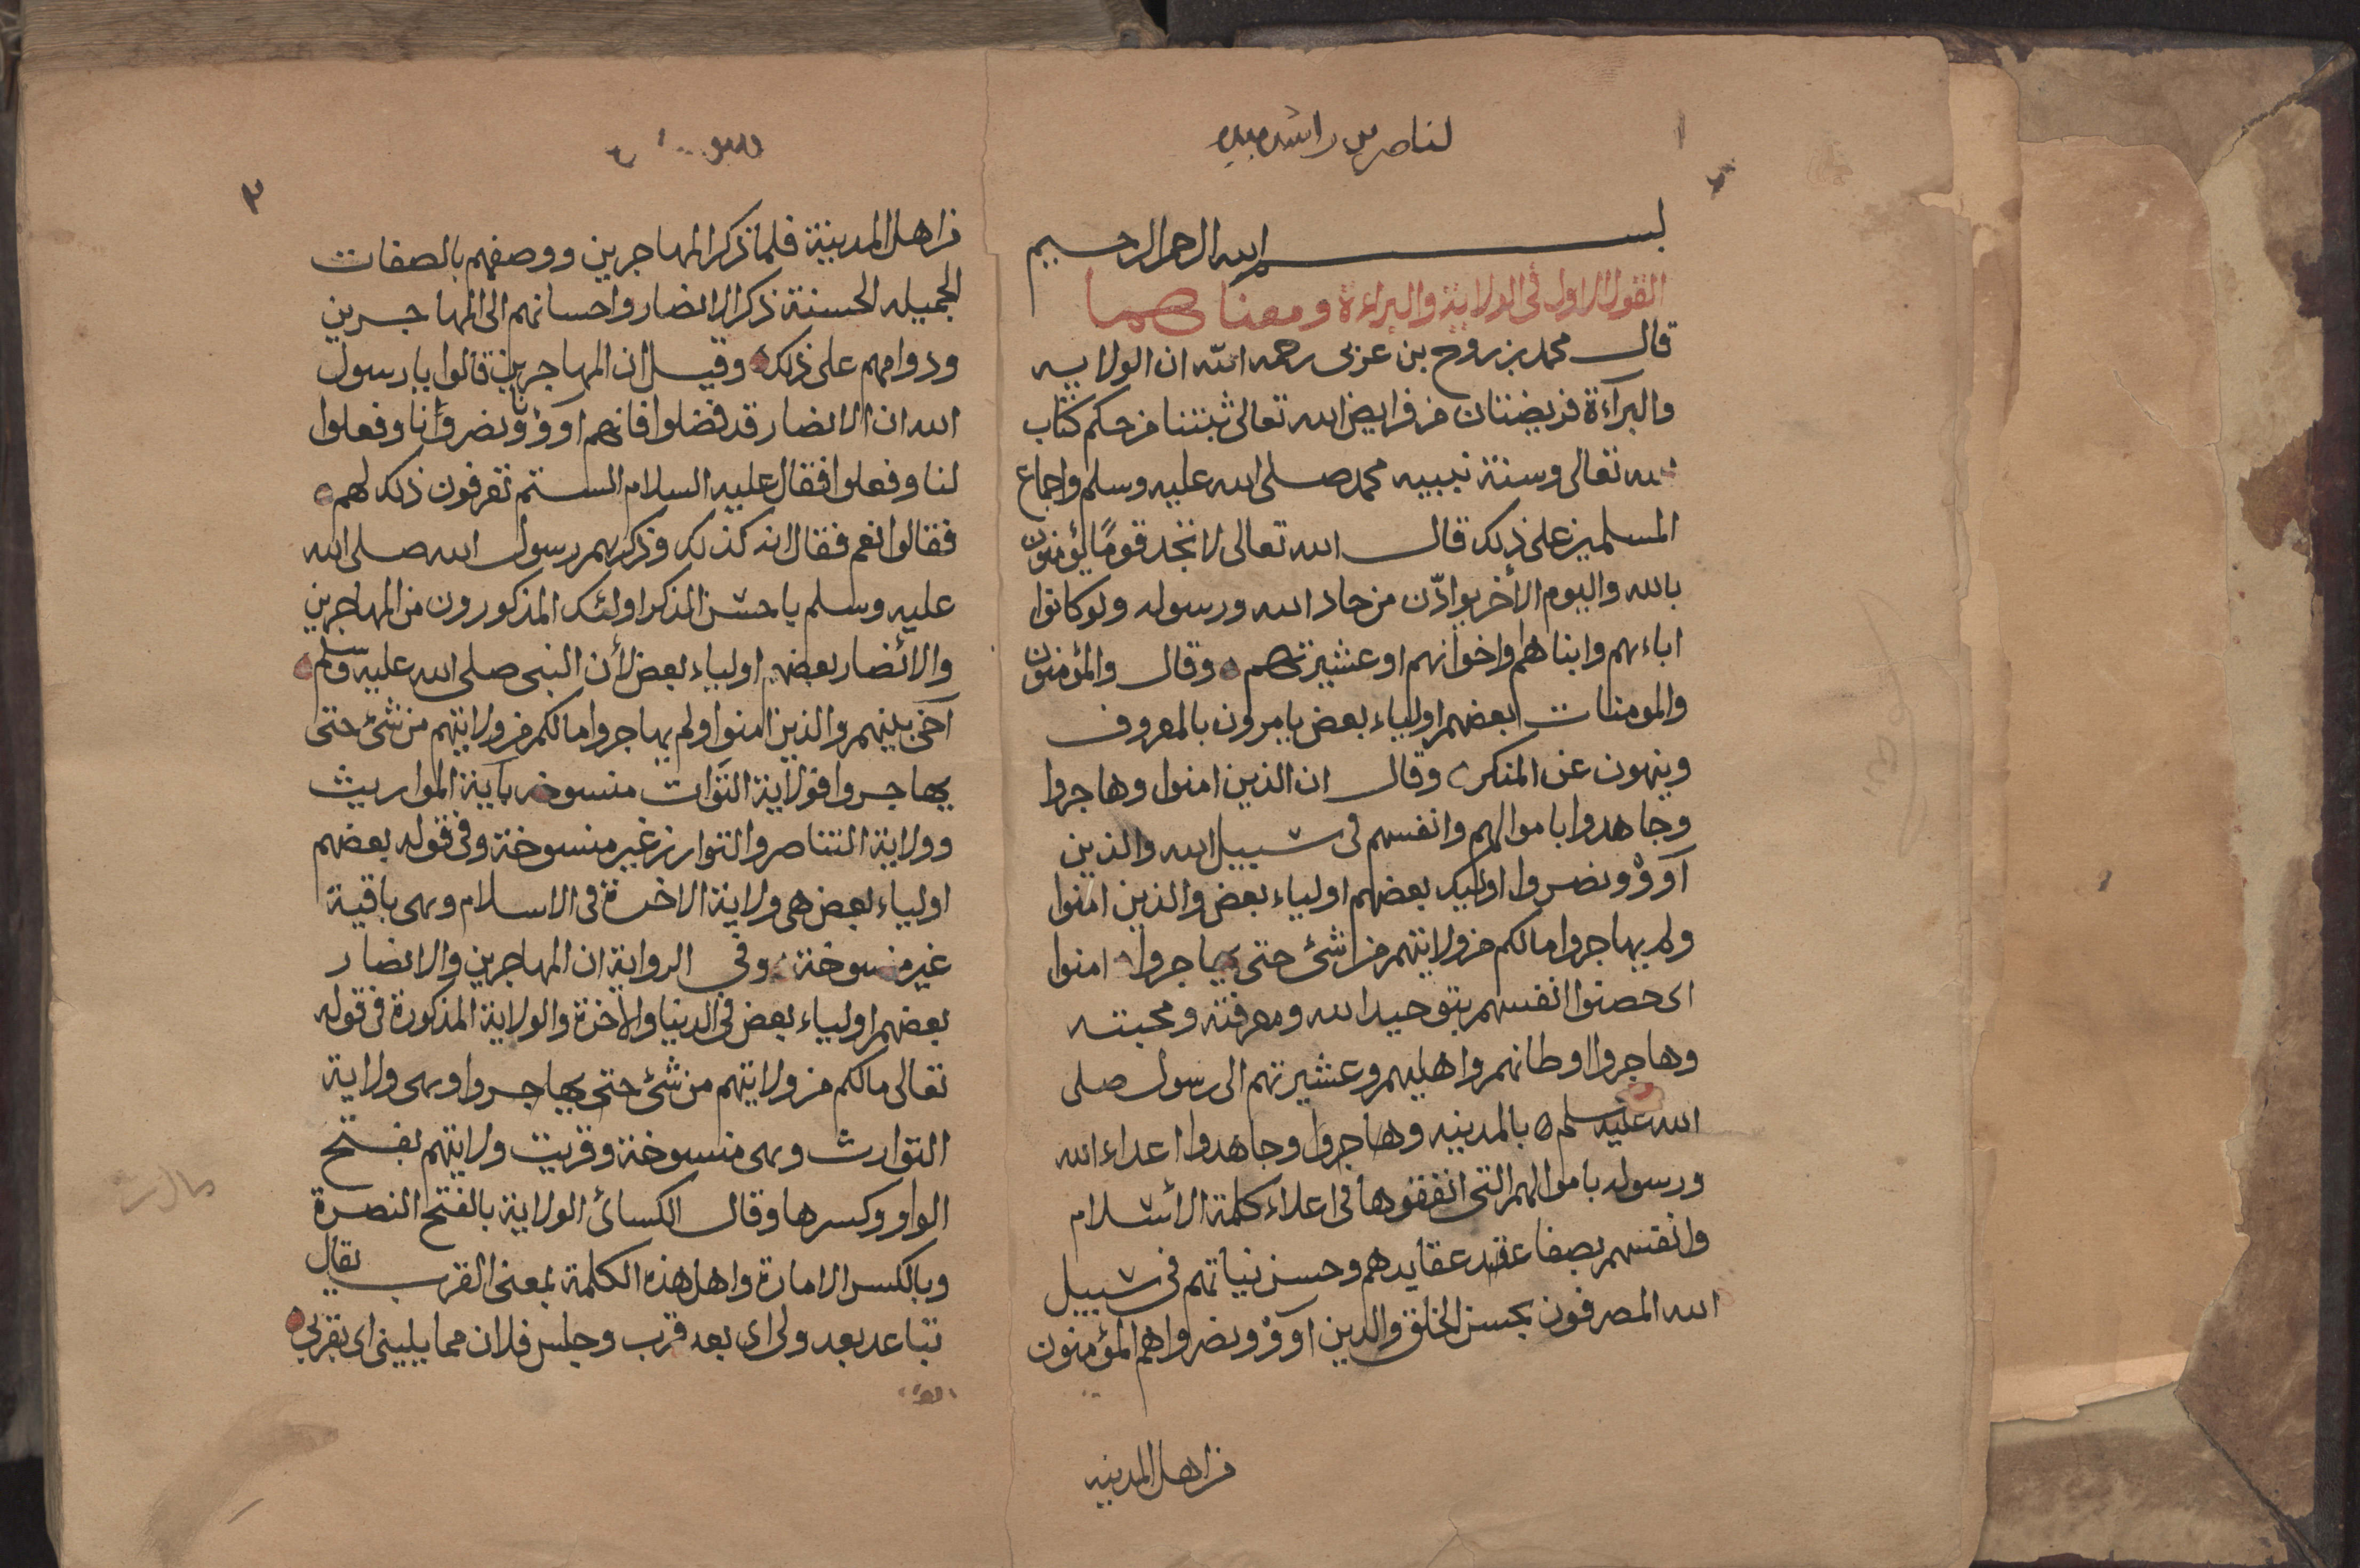 لناصر بن راشد
بسم الله الرحمن الرحيم
القول الاول في الولاية والبراءة ومعناهما
قال محمد بن روح بن عربى رحمه الله ان الولايه
والبرآءة فريضتان من فرايض الله تعالى ثبتتا من حكم كتاب
الله تعالى وسنة نبييه محمد صلى الله عليه وسلم واجماع
المسلمين على ذلك قال الله تعالى لا تجد قومًا يؤمنون
بالله واليوم الآخر يوادّن من حاد الله ورسوله ولو كانوا
اباءهم وابناهم واخوانهم او عشيرتهم ه وقال والمؤمنون
والمومنات بعضهم اولياء بعض يامرون بالمعروف
وينهون عن المنكر ه وقال ان الذين امنوا وهاجروا
وجاهدوا باموالهم وانفسهم فى سبيل الله والذين
آووْ ونصروا اوليك بعضهم اولياء بعض والذين امنوا
ولم يهاجروا مالكم من ولايتهم من شئ حتى يهاجروا ه امنوا
اى حصنوا انفسهم بتوحيد الله ومعرفته ومحبته
وهاجروا اوطانهم واهليهم وعشيرتهم الى رسول صلى
الله عليه سلم ه بالمدينه وهاجروا وجاهدوا اعداء الله
ورسوله باموالهم التى انفقوها فى اعلاء كلمة الأسلام
وانفسهم بصفا عقد عقايدهم وحسن نياتهم فى سبيل
الله المصرفون بحسن الخلق والدين آووْ ونصروا هم المؤمنون
من اهل المدينه
٣
من اهل المدينة فلما ذكر المهاجرين ووصفهم بالصفات
الجميله الحسنة ذكر الانصار واحسانهم الى المهاجرين
ودوامهم على ذلك ه وقيل ان المهاجرين قالوا يا رسول
الله ان الانصار قد فضلوا فانهم اوؤونا ونصروأنا وفعلوا
لنا وفعلوا فقال عليه السلام الستم تعرفون ذلك لهم ه
فقالوا نعم فقال انه كذلك وذكرهم رسول الله صلى الله
عليه وسلم باحسن الذكر اولئك المذكورون من المهاجرين
والأنصار بعضهم اولياء بعض لأن النبى صلى الله عليه وسلم ه
آخى بينهم والذين امنوا ولم يهاجروا مالكم من ولايتهم من شئ حتى
يهاجروا فولاية التوات منسوخه باية المواريث
وولاية التناصر والتوارز غير منسوخة وفى قوله بعضهم
اولياء بعض هى ولاية الاخرة فى الاسلام وهى باقية
غير منسوخة وفى الرواية ان المهاجرين والانصار
بعضهم اولياء بعض فى الدنيا والآخرة والولاية المذكورة فى قوله
تعالى مالكم من ولايتهم من شئ حتى يهاجروا وهى ولاية
التوارث وهى منسوخة وقريت ولايتهم بفتح
الواو وكسرها وقال الكسائ الولاية بالفتح النصرة
وبالكسر الامارة واهل هذه الكلمة بمعنى القرب يقال
تباعد بعد ولى اى بعد قرب وجلس فلان مما يلينى اى بقربى ه